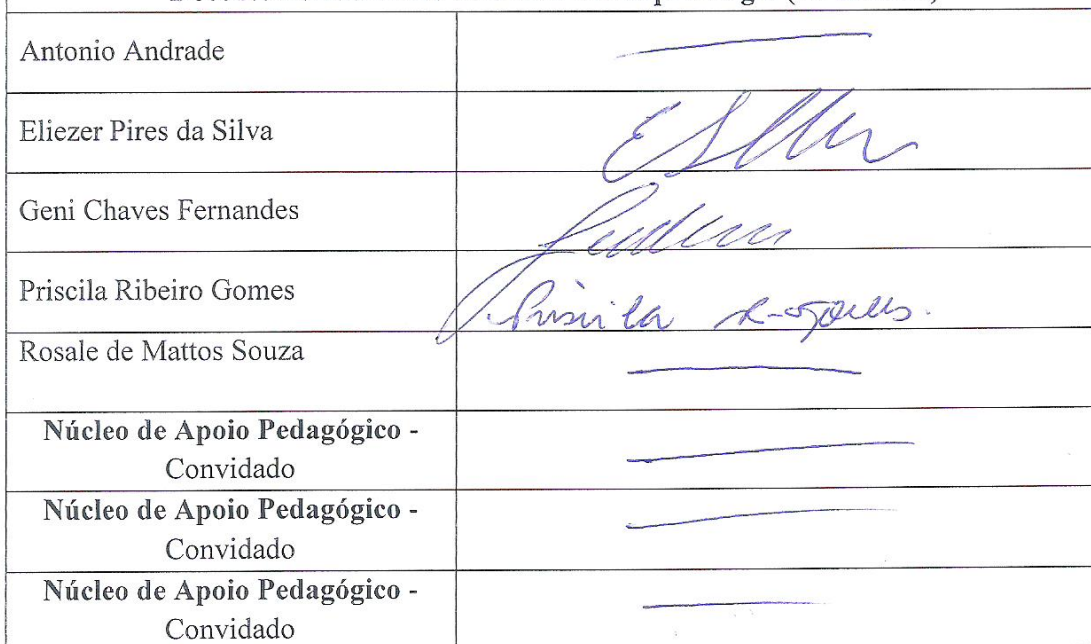 Antonio Andrade
Eliezer Pires da Silva
Geni Chaves Fernandes
Priscila Ribeiro Gomes
Priscila R. Gomes.
Rosale de Mattos Souza
Núcleo de Apoio Pedagógico -
Convidado
Núcleo de Apoio Pedagógico -
Convidado
Núcleo de Apoio Pedagógico -
Convidado